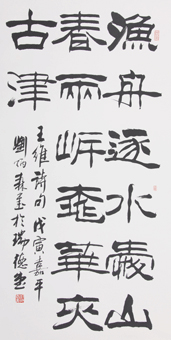 漁舟逐水愛山
春兩岸桃華夾
古津
王維詩句戊寅嘉平
劉炳森書於瑞德堂